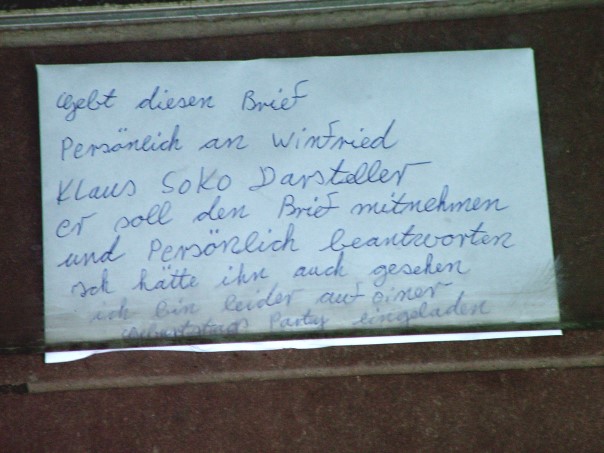 Gebt diesen Brief
Persönlich an Winfried
Klaus SoKo Darsteller
er soll den Brief mitnehmen
und Persönlich beantworten
Ich hätte ihn auch gesehen
ich bin leider auf einer
Geburtstags Party eingeladen